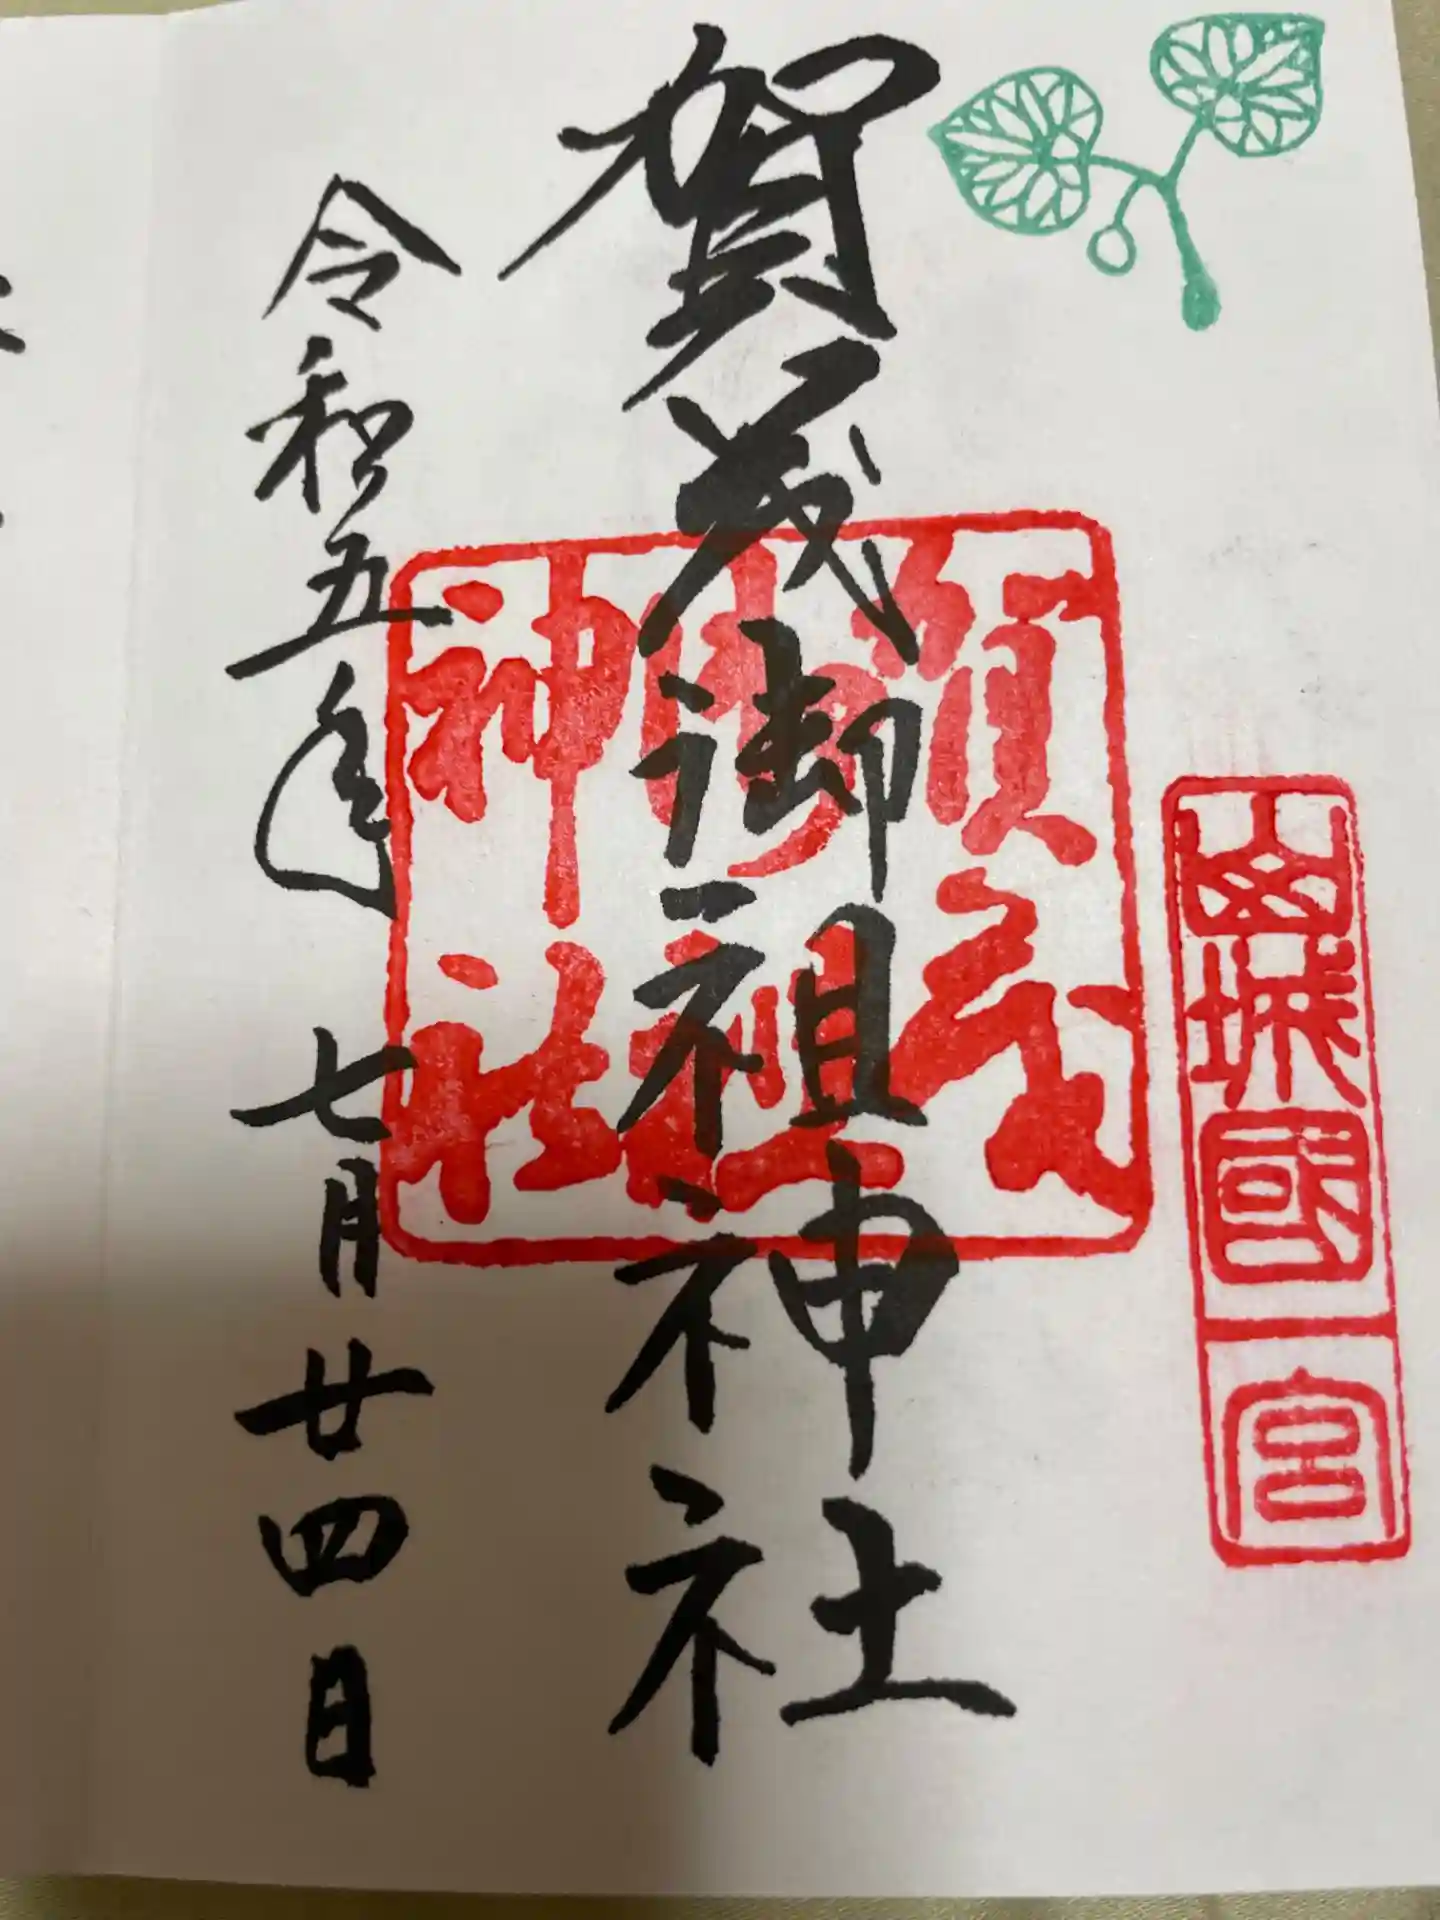 山城國
一宮
賀茂御祖神社
賀茂
御祖
神社
令和五年 七月廿四日